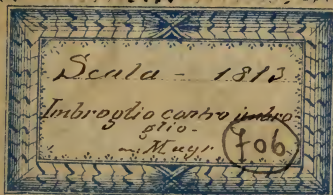 Scala - 1813
Imbroglio contro imbro
glio -
Mayr
706